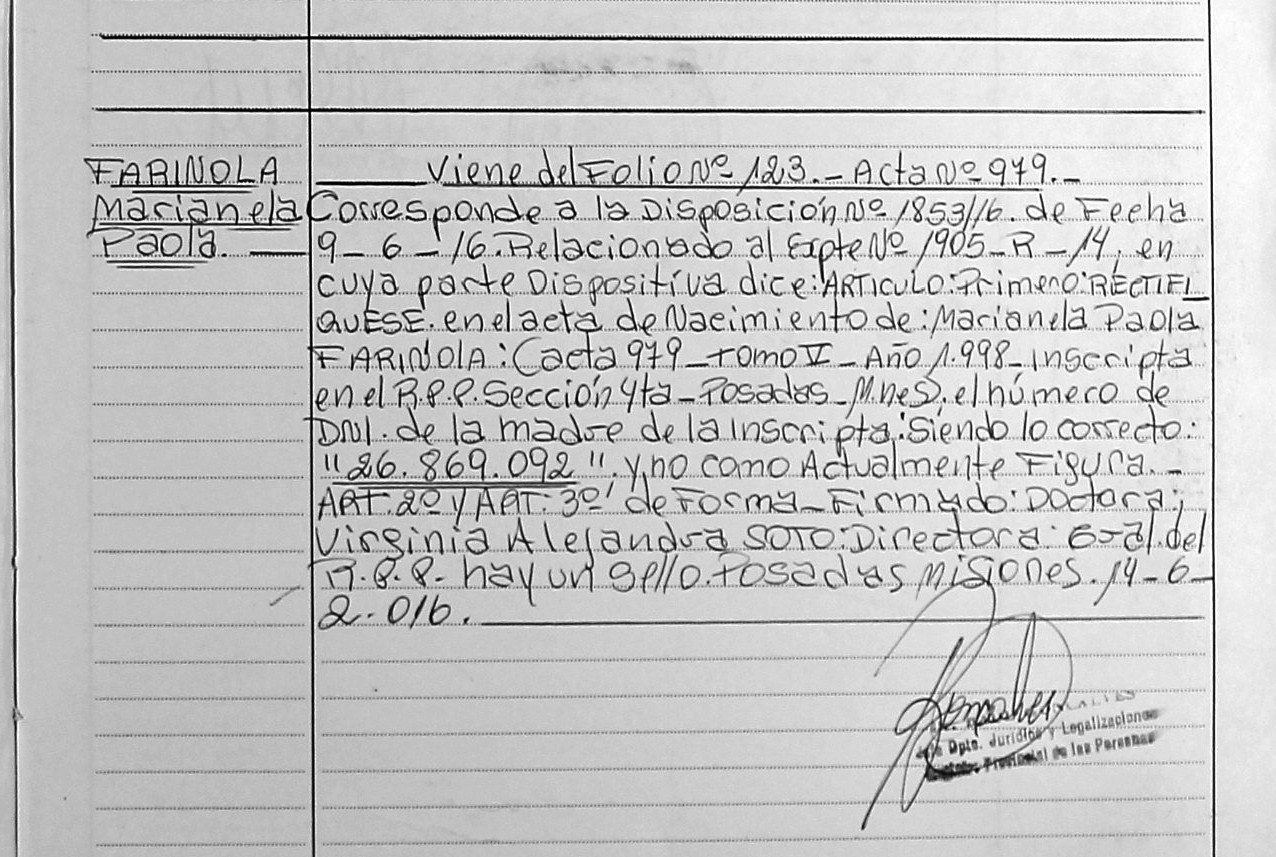 FARINOLA
Marianela
Paola.
Viene del Folio Nº 123.- Acta Nº 979.-
Corresponde a la Disposición Nº 1853/16. de Fecha
9-6-16. Relacionado al Expte Nº 1905-R-14, en
cuya parte Dispositiva dice: ARTICULO: Primero: RECTIFI_
QUESE. en el acta de Nacimiento de: Marianela Paola
FARINOLA: Cacta 979-Tomo V-Año 1.998-Inscripta
en el R.P.P. Sección 4ta-Posadas-M.nes). el número de
DNI. de la madre de la inscripta: Siendo lo correcto:
"26.869.092". y no como Actualmente Figura.-
ART. 2º y ART. 3º' de Forma-Firmado: Doctora:
Virginia Alejandra SOTO: Directora: Gral. del
R.P.P. hay un sello. Posadas Misiones. 14-6-
2.016.
Dpto. Jurídico y Legalizaciones
Provincial de las Personas